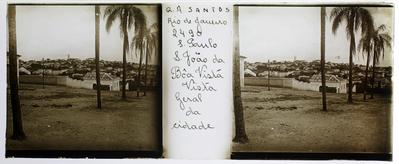 G.A SANTOS
Rio de Janeiro
2490
S. Paulo
S. João da
Bôa Vista
Vista
Geral
da
cidade